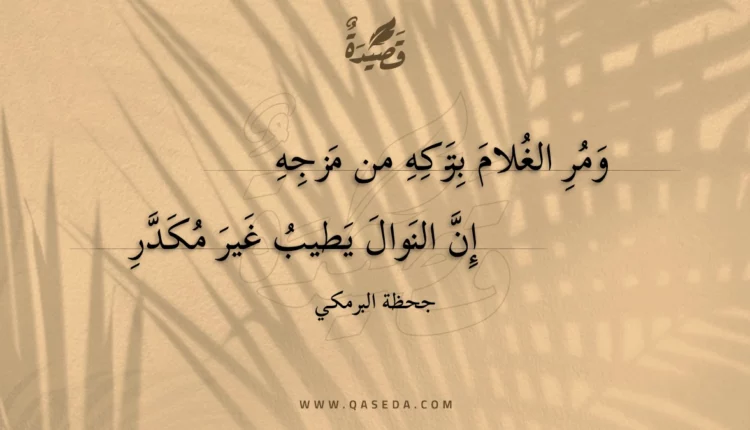 قَصِيدَةٌ
وَمُرِ الغُلامَ بِتَركِهِ من مَزجِهِ
إِنَّ النَوالَ يَطيبُ غَيرَ مُكَدَّرِ
جحظة البرمكي
WWW.QASEDA.COM